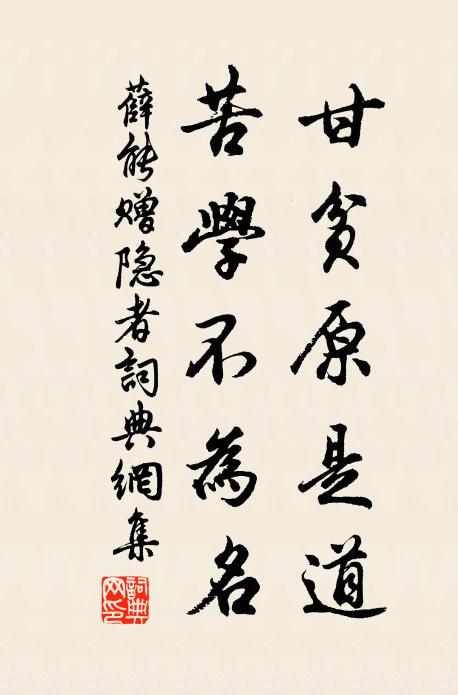 甘貧原是道
苦學不為名
薛能赠隐者詞典網集
詞典网印